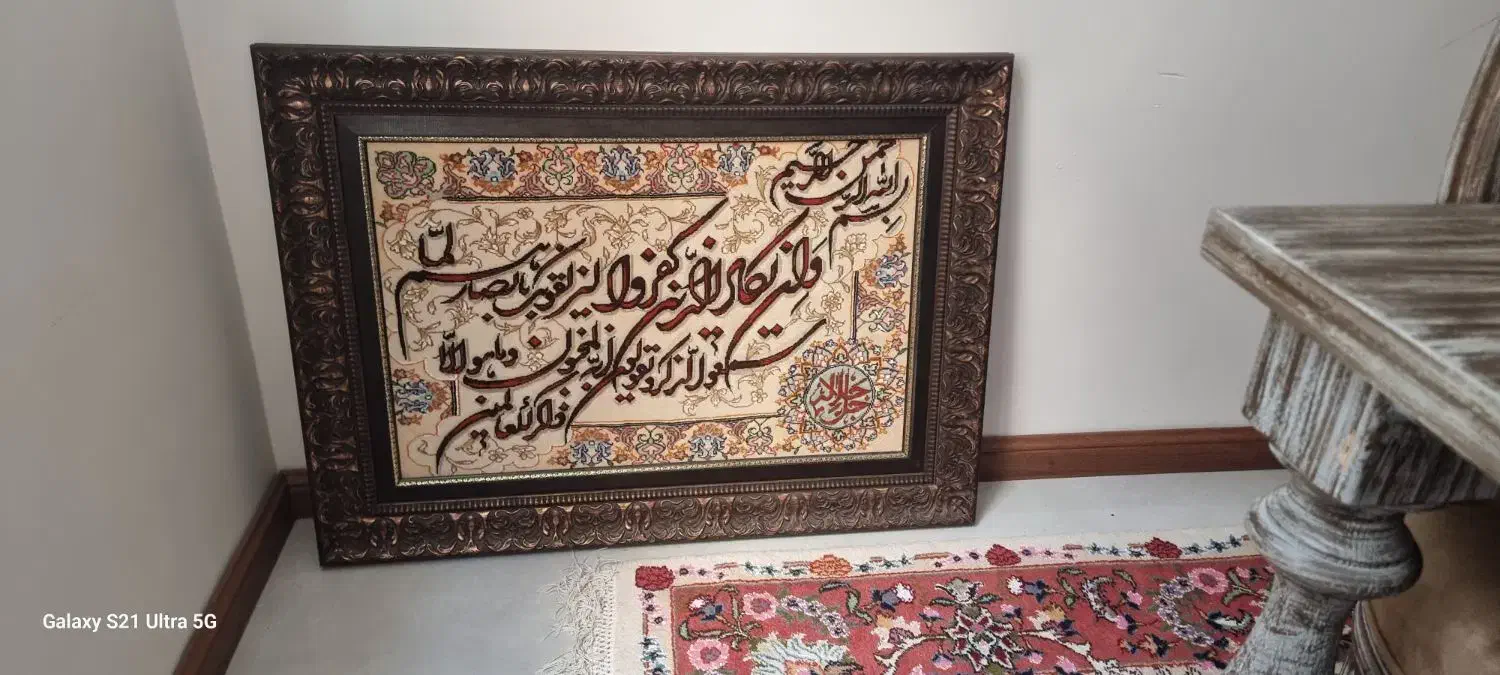 بسم الله الرحمن الرحیم
وان یکاد الذین کفروا لیزلقونک بابصارهم لما
سمعوا الذکر و یقولون انه لمجنون وما هو الا
ذکر للعالمین
جل جلاله
Galaxy S21 Ultra 5G